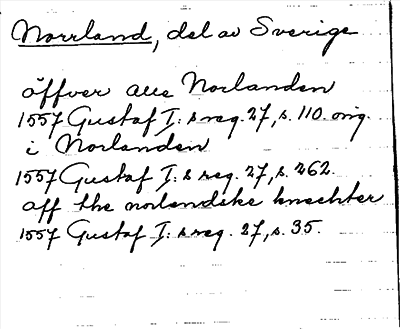 Norrland, del av Sverige
öffver alle Norlanden
1557 Gustaf I:s reg. 27, s. 110. orig.
i Norlanden
1557 Gustaf I:s reg. 27, s. 262.
aff the norlandske knechter
1557 Gustaf I:s reg. 27, s. 35.